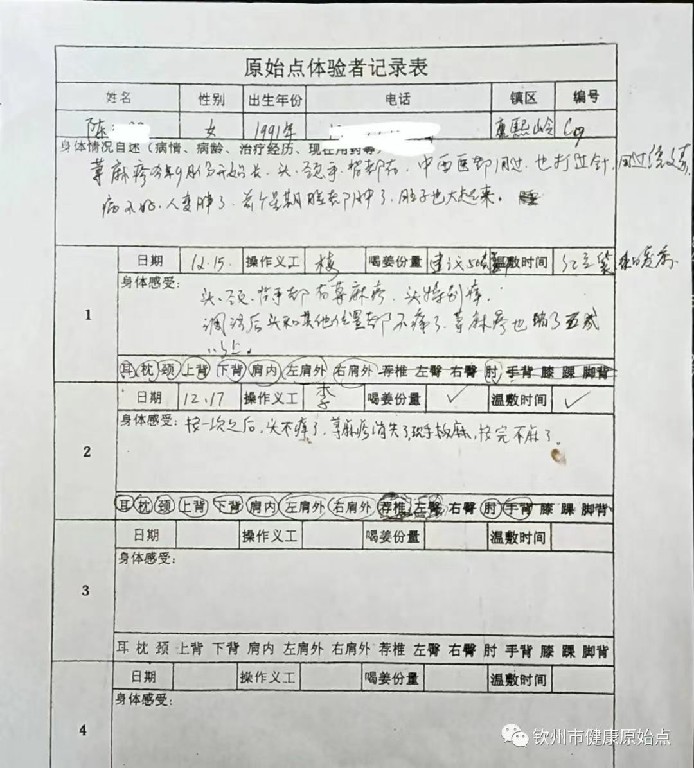 原始点体验者记录表
姓名 性别 出生年份 电话 镇区 编号
陈 女 1991年 康熙岭 C09
身体情况自述(病情、病龄、治疗经历、现在用药等
荨麻疹 9月份开始长,头、颈、手、背都有,中西医都用过,也打过针,
病不好,人变肿了,前个星期脸都肿了,肚子也大起来。
1
日期 12.15. 操作义工 梅 喝姜份量 建议50克 温敷时间 红豆袋
身体感受:
头、颈、背、手都有荨麻疹,头特别痒。
调洁后头和其他位置都不痒了,荨麻疹也消了五成
以上。
耳 枕 颈 上背 下背 肩内 左肩外 右肩外 荐椎 左臀 右臀 肘 手背 膝 踝 脚背
日期 12.17 操作义工 李 喝姜份量 ✓ 温敷时间 ✓
2
身体感受: 按一次之后,头不痒了,荨麻疹消失了,手较麻,按完不麻了。
耳 枕 颈 上背 下背 肩内 左肩外 右肩外 荐椎 左臀 右臀 肘 手背 膝 踝 脚背
日期 操作义工 喝姜份量 温敷时间
3
身体感受:
耳 枕 颈 上背 下背 肩内 左肩外 右肩外 荐椎 左臀 右臀 肘 手背 膝 踝 脚背
日期 操作义工 喝姜份量 温敷时间
4
身体感受:
钦州市健康原始点